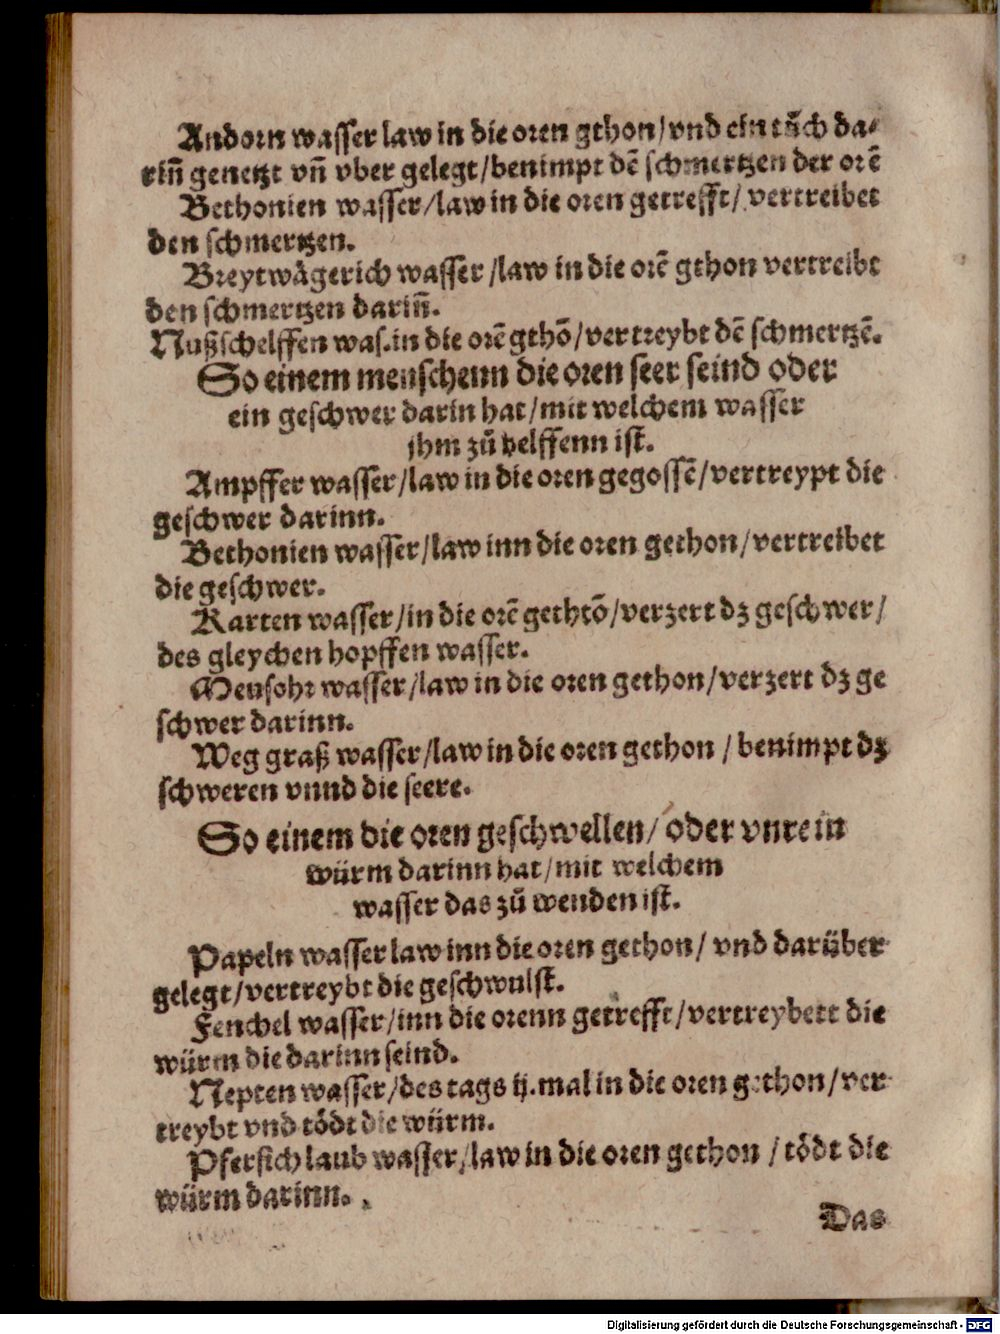 Andorn wasser law in die oren gthon/vnd ein tůch da-
rin̄ genetzt vn̄ vber gelegt/benimpt dē schmertzen der orē
Bethonien wasser/law in die oren getrefft/vertreibet
den schmertzen.
Breytwägerich wasser/law in die orē gthon vertreibt
den schmertzen darin̄.
Nußschelffen was.in die orē gthō/vertreybt dē schmertzē.
So einem menschenn die oren seer seind oder
ein geschwer darin hat/mit welchem wasser
jhm zů helffenn ist.
Ampffer wasser/law in die oren gegossē/vertreypt die
geschwer darinn.
Bethonien wasser/law inn die oren gethon/vertreibet
die geschwer.
Karten wasser/in die orē gethtō/verzert dz geschwer/
des gleychen hopffen wasser.
Meusohr wasser/law in die oren gethon/verzert dz ge
schwer darinn.
Weg graß wasser/law in die oren gethon/benimpt dz
schweren vnnd die seere.
So einem die oren geschwellen/oder vnrein
würm darinn hat/mit welchem
wasser das zů wenden ist.
Papeln wasser law inn die oren gethon/vnd darüber
gelegt/vertreybt die geschwulst.
Fenchel wasser/inn die orenn getrefft/vertreybett die
würm die darinn seind.
Nepten wasser/des tags ij.mal in die oren gethon/ver
treybt vnd tödt die würm.
Pfersich laub wasser/law in die oren gethon/tödt die
würm darinn.
Das
Digitalisierung gefördert durch die Deutsche Forschungsgemeinschaft - DFG